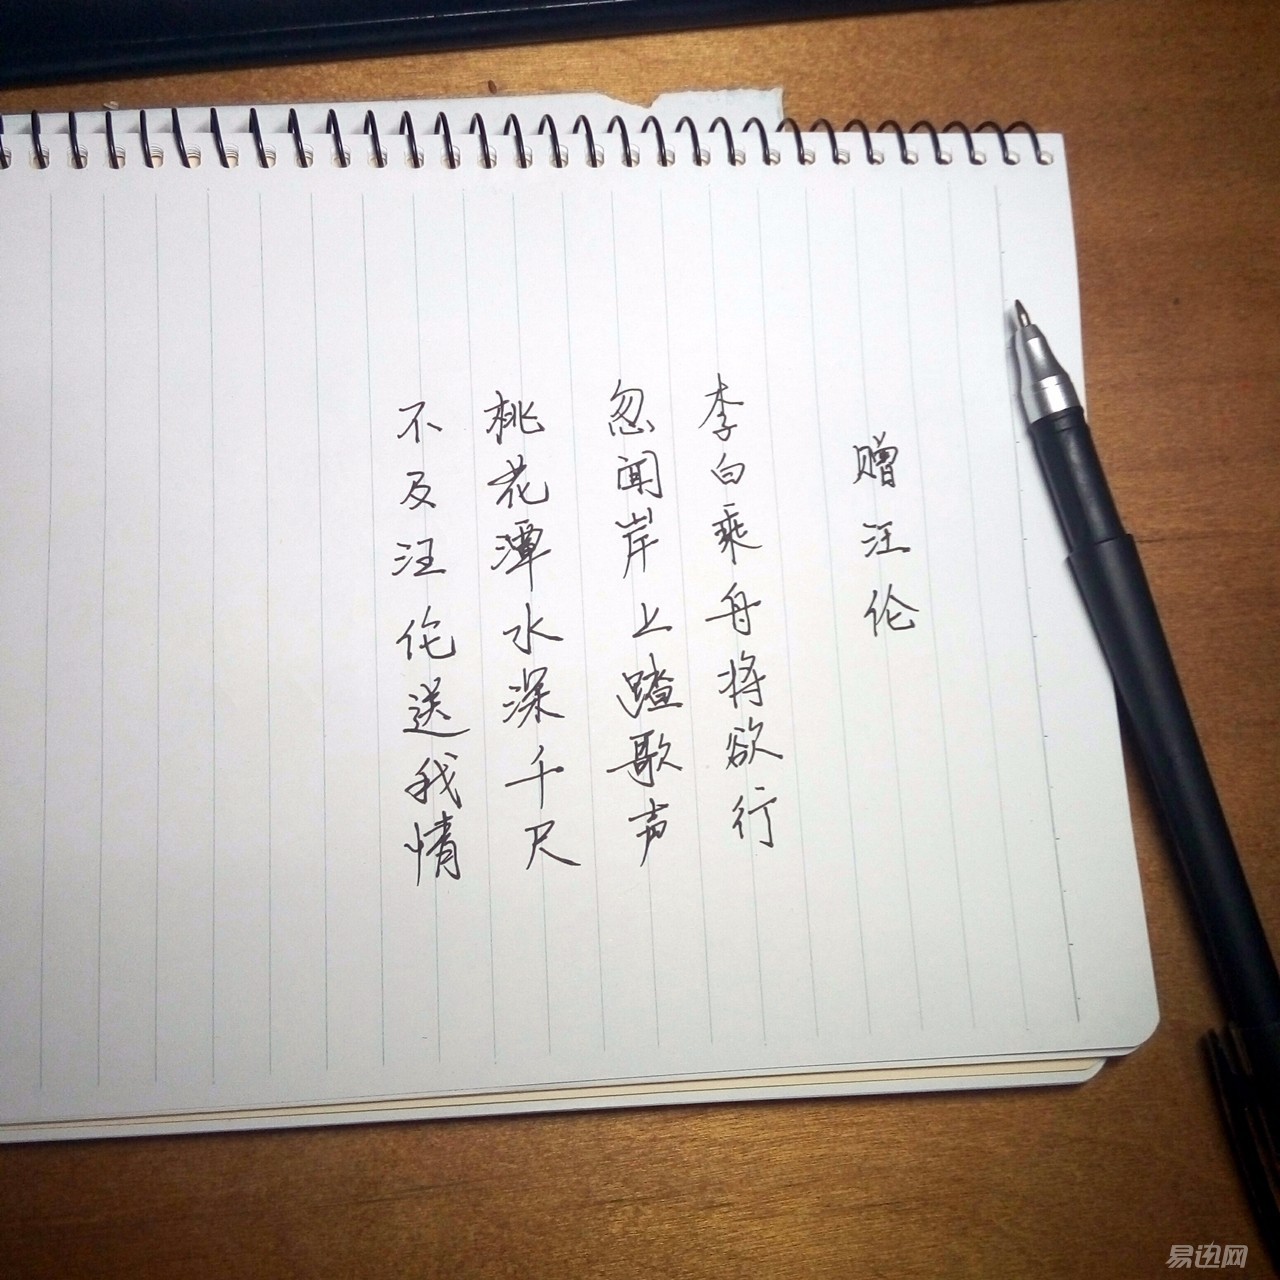 赠汪伦
李白乘舟将欲行
忽闻岸上踏歌声
桃花潭水深千尺
不及汪伦送我情
易迅网